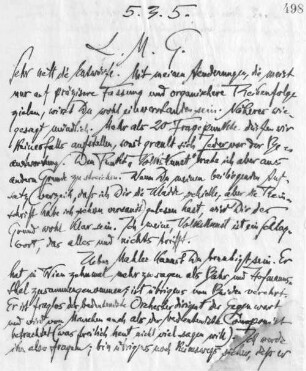 498
5.3.5.
L. M. G.
Sehr nett die Entwürfe. Mit meinen Aenderungen, die meist
nur auf präzisere Fassung und organischere Reihenfolge
zielen, wirst Du wohl einverstanden sein. Näheres wie
gesagt mündlich. Mehr als 20 Fragepunkte dürfen wir
keinesfalls aufstellen, sonst grault sich Jeder vor der Be-
antwortung. Den Punkt „Volkskunst" bitte ich aber aus
andern Grund zu streichen. Wenn Du meinen beiliegenden Auf-
satz, dass ich Dir die schicke, aber die Rein-
schrift habe ich schon gelesen haut, wird Dir der
Grund wohl klar sein. Ich meine, Volkskunst ist ein Schlag-
wort, das alles und nichts trifft.
Ueber Mahler kannst Du beruhigt sein. Er
hat in Wien mehr zu sagen als Bahr und Hofmanns-
thal zusammengenommen, ist übrigens von Beiden verehrt.
Er ist fraglos der bedeutendste Orchesterdirigent der Gegenwart
und wird von Manchen auch als der bedeutendste Componist
betrachtet, was freilich heut nicht viel sagen will. Ich wurde
ihn also fragen; bin übrigens noch keineswegs sicher, dass er